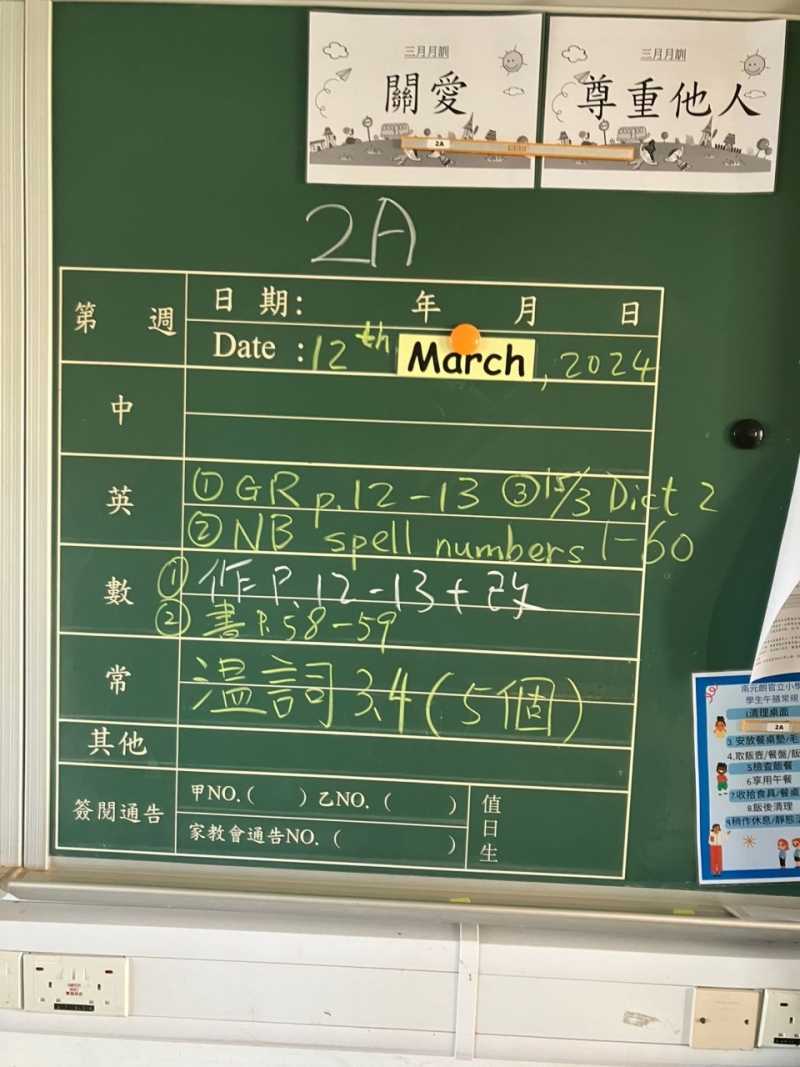 三月月訓
關愛
三月月訓
尊重他人
2A
2A
第 週
日 期: 年 月 日
Date : 12th March, 2024
中
英
① GR p.12-13 ③ 15/3 Dict 2
② NB spell numbers 1-60
數
① 作 P.12-13+改
② 書 P.58-59
常
溫詞 3,4 (5個)
其他
簽閱通告
甲NO. ( ) 乙NO. ( )
家教會通告NO. ( )
值日生
南元朗官立小學
學生午膳常規
1.清理桌面
2A
3.安放餐桌墊/毛
4.取飯壺/餐盤/飯
5.檢查飯餐
6.享用午餐
7.收拾食具/餐桌
8.飯後清理
9.稍作休息/靜態活